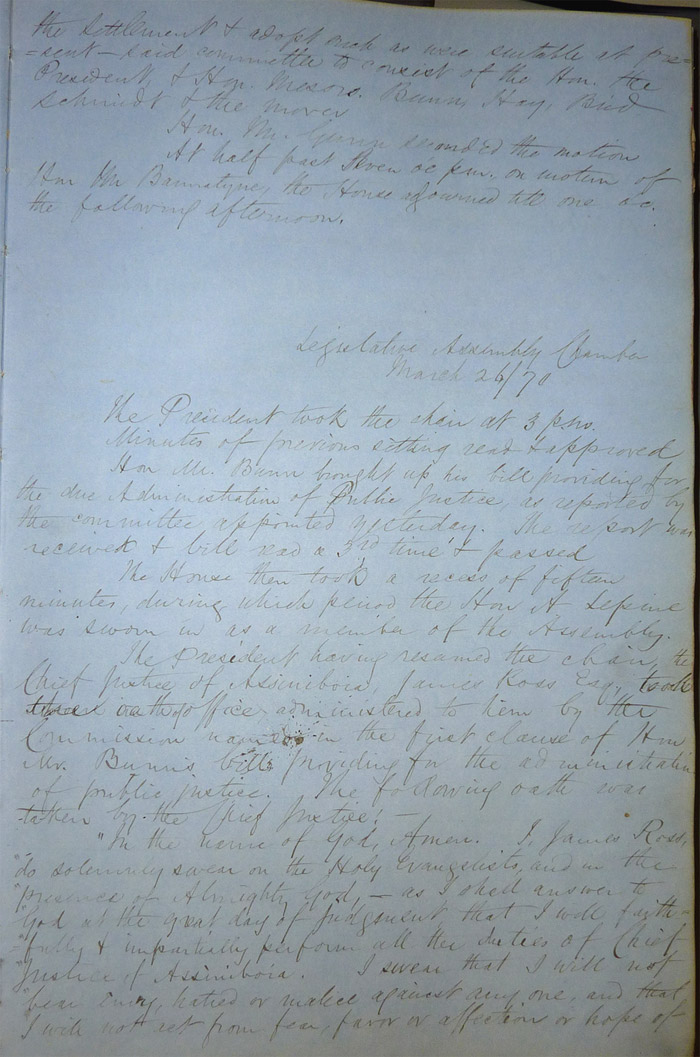 the Settlement & adopt such as were suitable at pre=
=sent - said committee to consist of the Hon. the
President, & Hon. Messrs. Bunn, Hay, Bird
Schmidt & the mover
Hon. Mr. Gunn seconded the motion
At half past seven oc p.m. on motion of
Hon Mr Bannatyne, the House adjourned till one oc.
the following afternoon.
Legislative Assembly Chamber
March 26/70
The President took the chair at 3 p.m.
Minutes of previous sitting read & approved
Hon Mr. Bunn brought up his bill providing for
the due Administration of Public Justice, as reported by
the committee appointed yesterday. The report was
received & bill read a 3rd time & passed
The House then took a recess of fifteen
minutes, during which period the Hon A Lepine
was sworn in as a member of the Assembly.
The President having resumed the chair, the
Chief Justice of Assiniboia, James Ross Esq, took
oath of office, administered to him by the
Commission named in the first clause of Hon
Mr. Bunn's bill providing for the administration
of public justice. The following oath was
taken by the Chief Justice: -
"In the name of God, Amen. I, James Ross,
"do solemnly swear on the Holy Evangelists, and in the
"presence of Almighty God, - as I shall answer to
God at the great day of Judgment, that I will faith=
"fully & impartially perform all the duties of Chief
"Justice of Assiniboia. I swear that I will not
"bear Envy, hatred or malice against any one, and that
"I will not act from fear, favor or affection or hope of